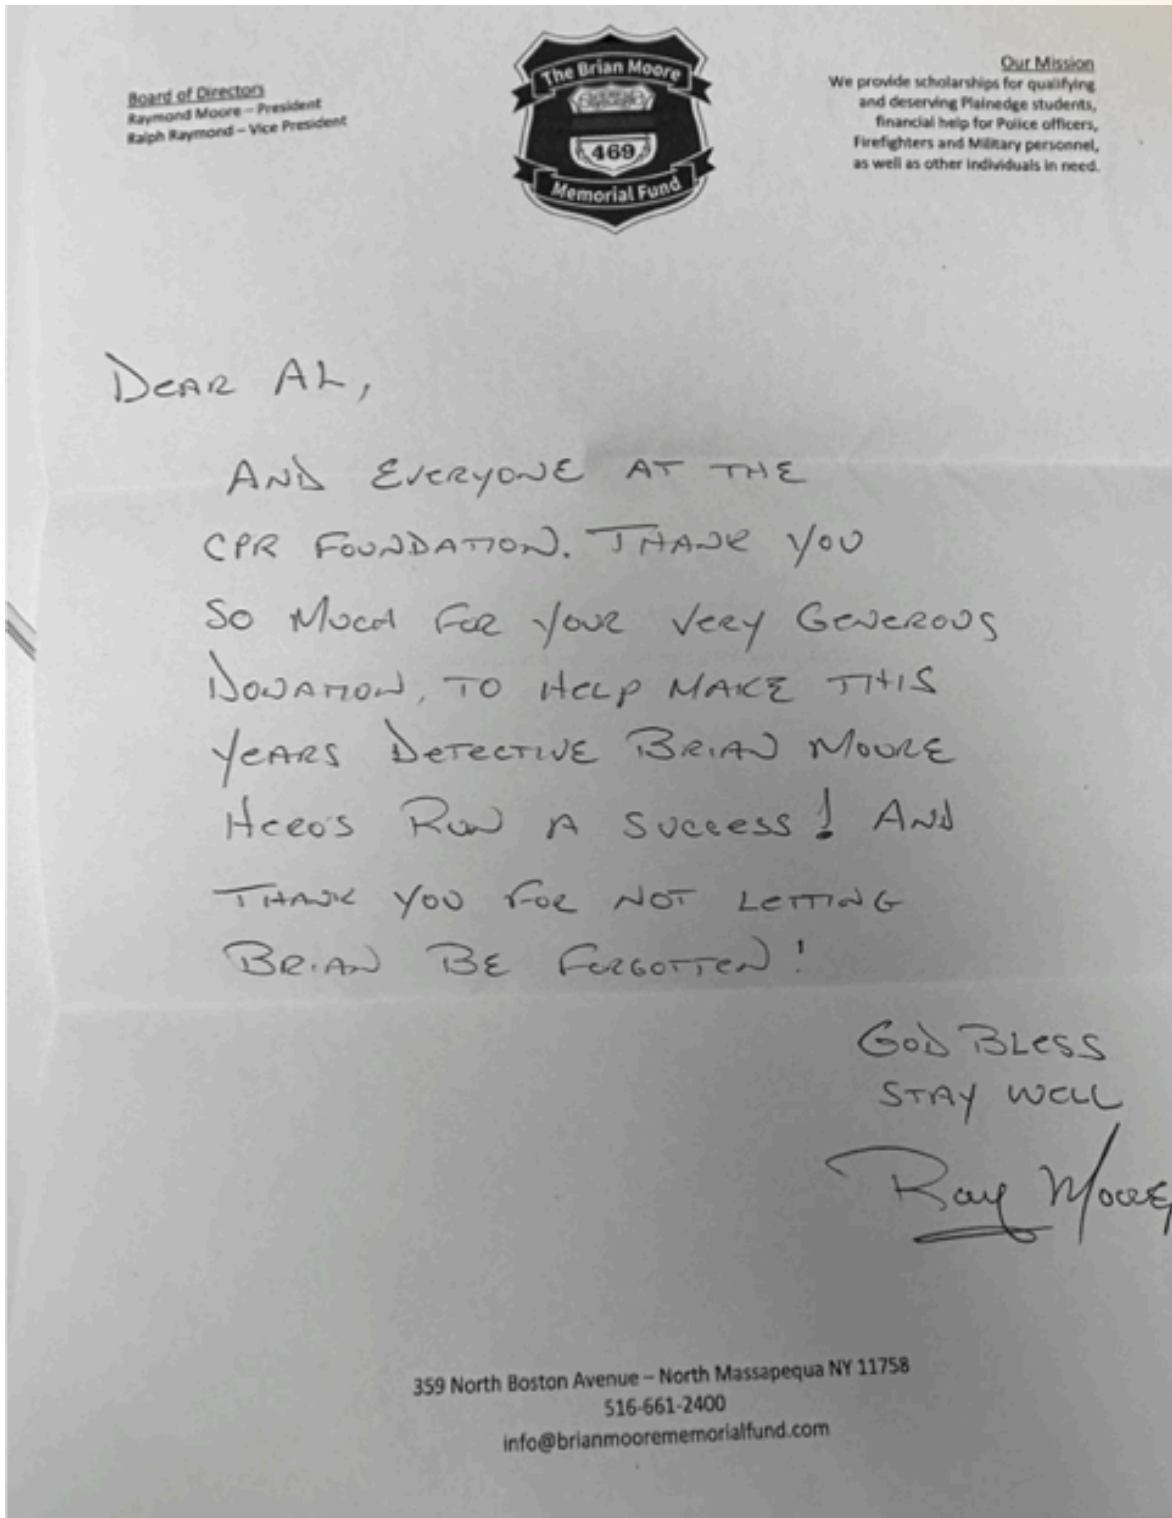 Board of Directors
Raymond Moore – President
Ralph Raymond – Vice President
The Brian Moore
469
Memorial Fund
Our Mission
We provide scholarships for qualifying
and deserving Plainedge students,
financial help for Police officers,
Firefighters and Military personnel,
as well as other individuals in need.
DEAR AL,
AND EVERYONE AT THE
CPR FOUNDATION. THANK YOU
SO MUCH FOR YOUR VERY GENEROUS
DONATION, TO HELP MAKE THIS
YEARS DETECTIVE BRIAN MOORE
HERO'S RUN A SUCCESS! AND
THANK YOU FOR NOT LETTING
BRIAN BE FORGOTTEN!
GOD BLESS
STAY WELL
Ray Moore
359 North Boston Avenue – North Massapequa NY 11758
516-661-2400
info@brianmoorememorialfund.com